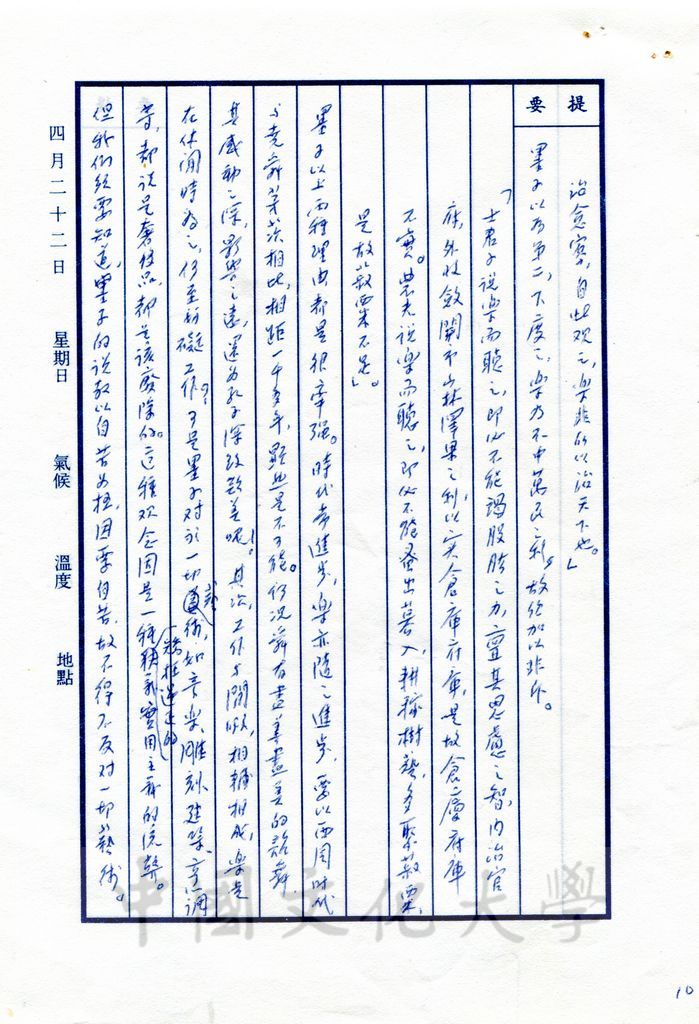 提要
治愈寡，自此观之，樂非所以治天下也。」
墨子以為第二、下度之，樂乃不中萬民之利，故從加以非斥。
「士君子說樂而聽之，即必不能竭股肱之力，亶其思慮之智，內治官
府，外收斂關市山林澤梁之利，以实倉庫府庫，是故倉廩府庫
不實。農夫說樂而聽之，即必不能蚤出暮入，耕稼樹藝，多聚菽粟，
是故菽粟不足」。
墨子以上兩种理由都是很牽强。時代常進步，樂亦隨之進步，要以西周時代
与堯舜茅茨相比，相距一千多年，顯然是不可能。何况舜有盡善盡美的韶舞
其感動之深，影响之遠，還为孔子深致歎美呢！其次，工作与閒娛，相輔相成，樂是
在休閒時為之，何至妨礙工作？可是墨子对於一切藝術，如音樂、雕刻、建築、烹調
等，都说是奢侈品，都是该廢除的。這種观念固是一種狹義實用主義的流弊。
務推選至的
但我們須要知道，墨子的說教以自苦为極，因要自苦，故不得不反对一切藝術。
四月二十二日 星期日 氣候 溫度 地點
中國文化大學
10